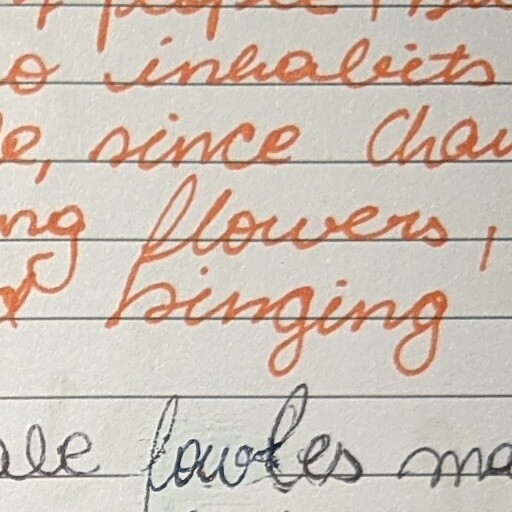 o inhabits
e, since Chau
ng flowers,
singing
ale fowles ma